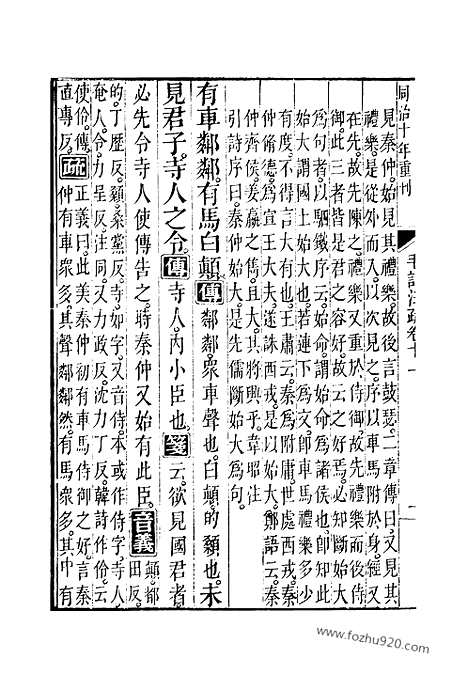 同治十年重刊
毛詩注疏卷十一
二
見秦仲始見其禮樂故後言鼓瑟二章傳曰又見其
禮樂是從外而入以次見之序以車馬附於身經又
在先故先陳之禮樂又重於侍御故先禮樂而後侍
御此三者皆是君之容好故云之好焉必知斷始大
爲句者以駟鐵序云始命謂始命爲諸侯也卽知此
始大謂國土始大也若連下爲文卽車馬禮樂多少
有度不得言大有也王肅云秦爲附庸世處西戎秦
仲脩德爲宣王大夫遂誅西戎是以始大鄭語云秦
仲齊侯姜嬴之雋且大其將興乎韋昭注
引詩序曰秦仲始大是先儒斷始大爲句
有車鄰鄰有馬白顚傳鄰鄰衆車聲也白顚的顙也未
見君子寺人之令傳寺人内小臣也箋云欲見國君者
必先令寺人使傳告之時秦仲又始有此臣音義顚都田反
的丁歷反顙桑黨反寺如字又音侍本或作侍字寺人
奄人令力呈反注同又力政反沈力丁反韓詩作伶云
使伶傳直專反疏正義曰此美秦仲初有車馬侍御之好言秦
仲有車衆多其聲鄰鄰然有馬衆多其中有
www.fozhu920.com